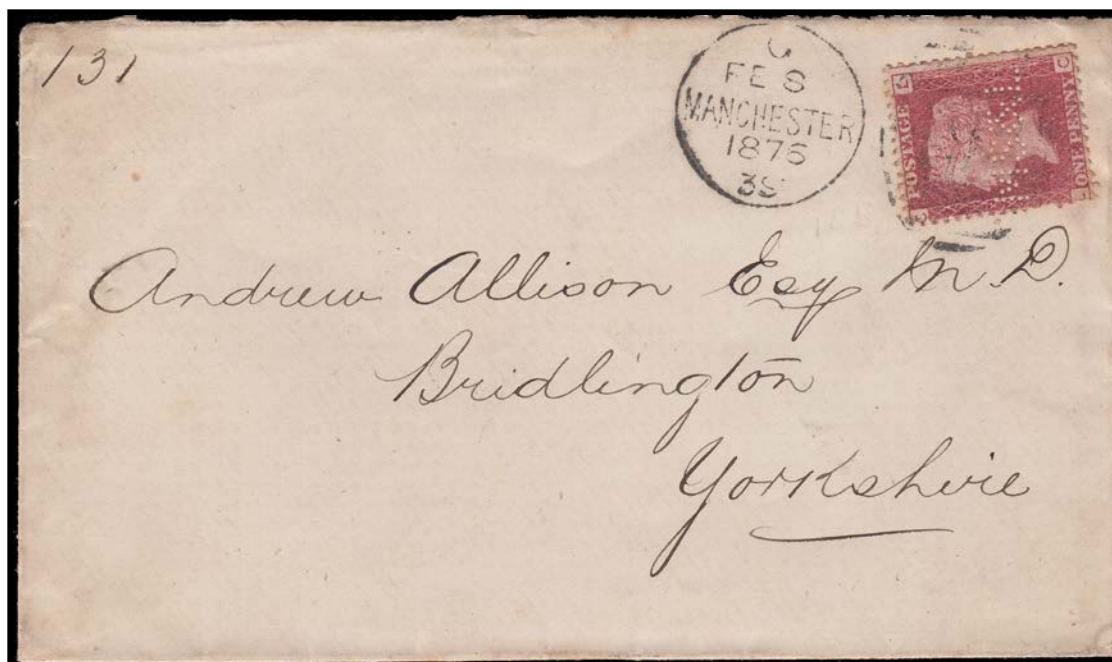 131
FE 8
MANCHESTER
1876
39
POSTAGE
ONE PENNY
Andrew Allison Esq M.D.
Bridlington
Yorkshire